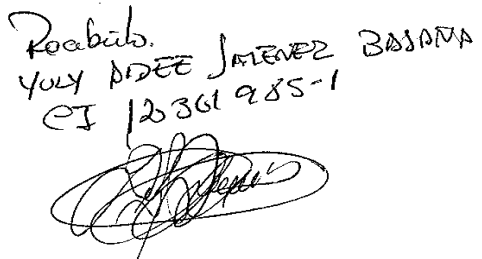 Recibido.
YULY AIDEE JIMENEZ BAJAÑA
CI 120361985-1